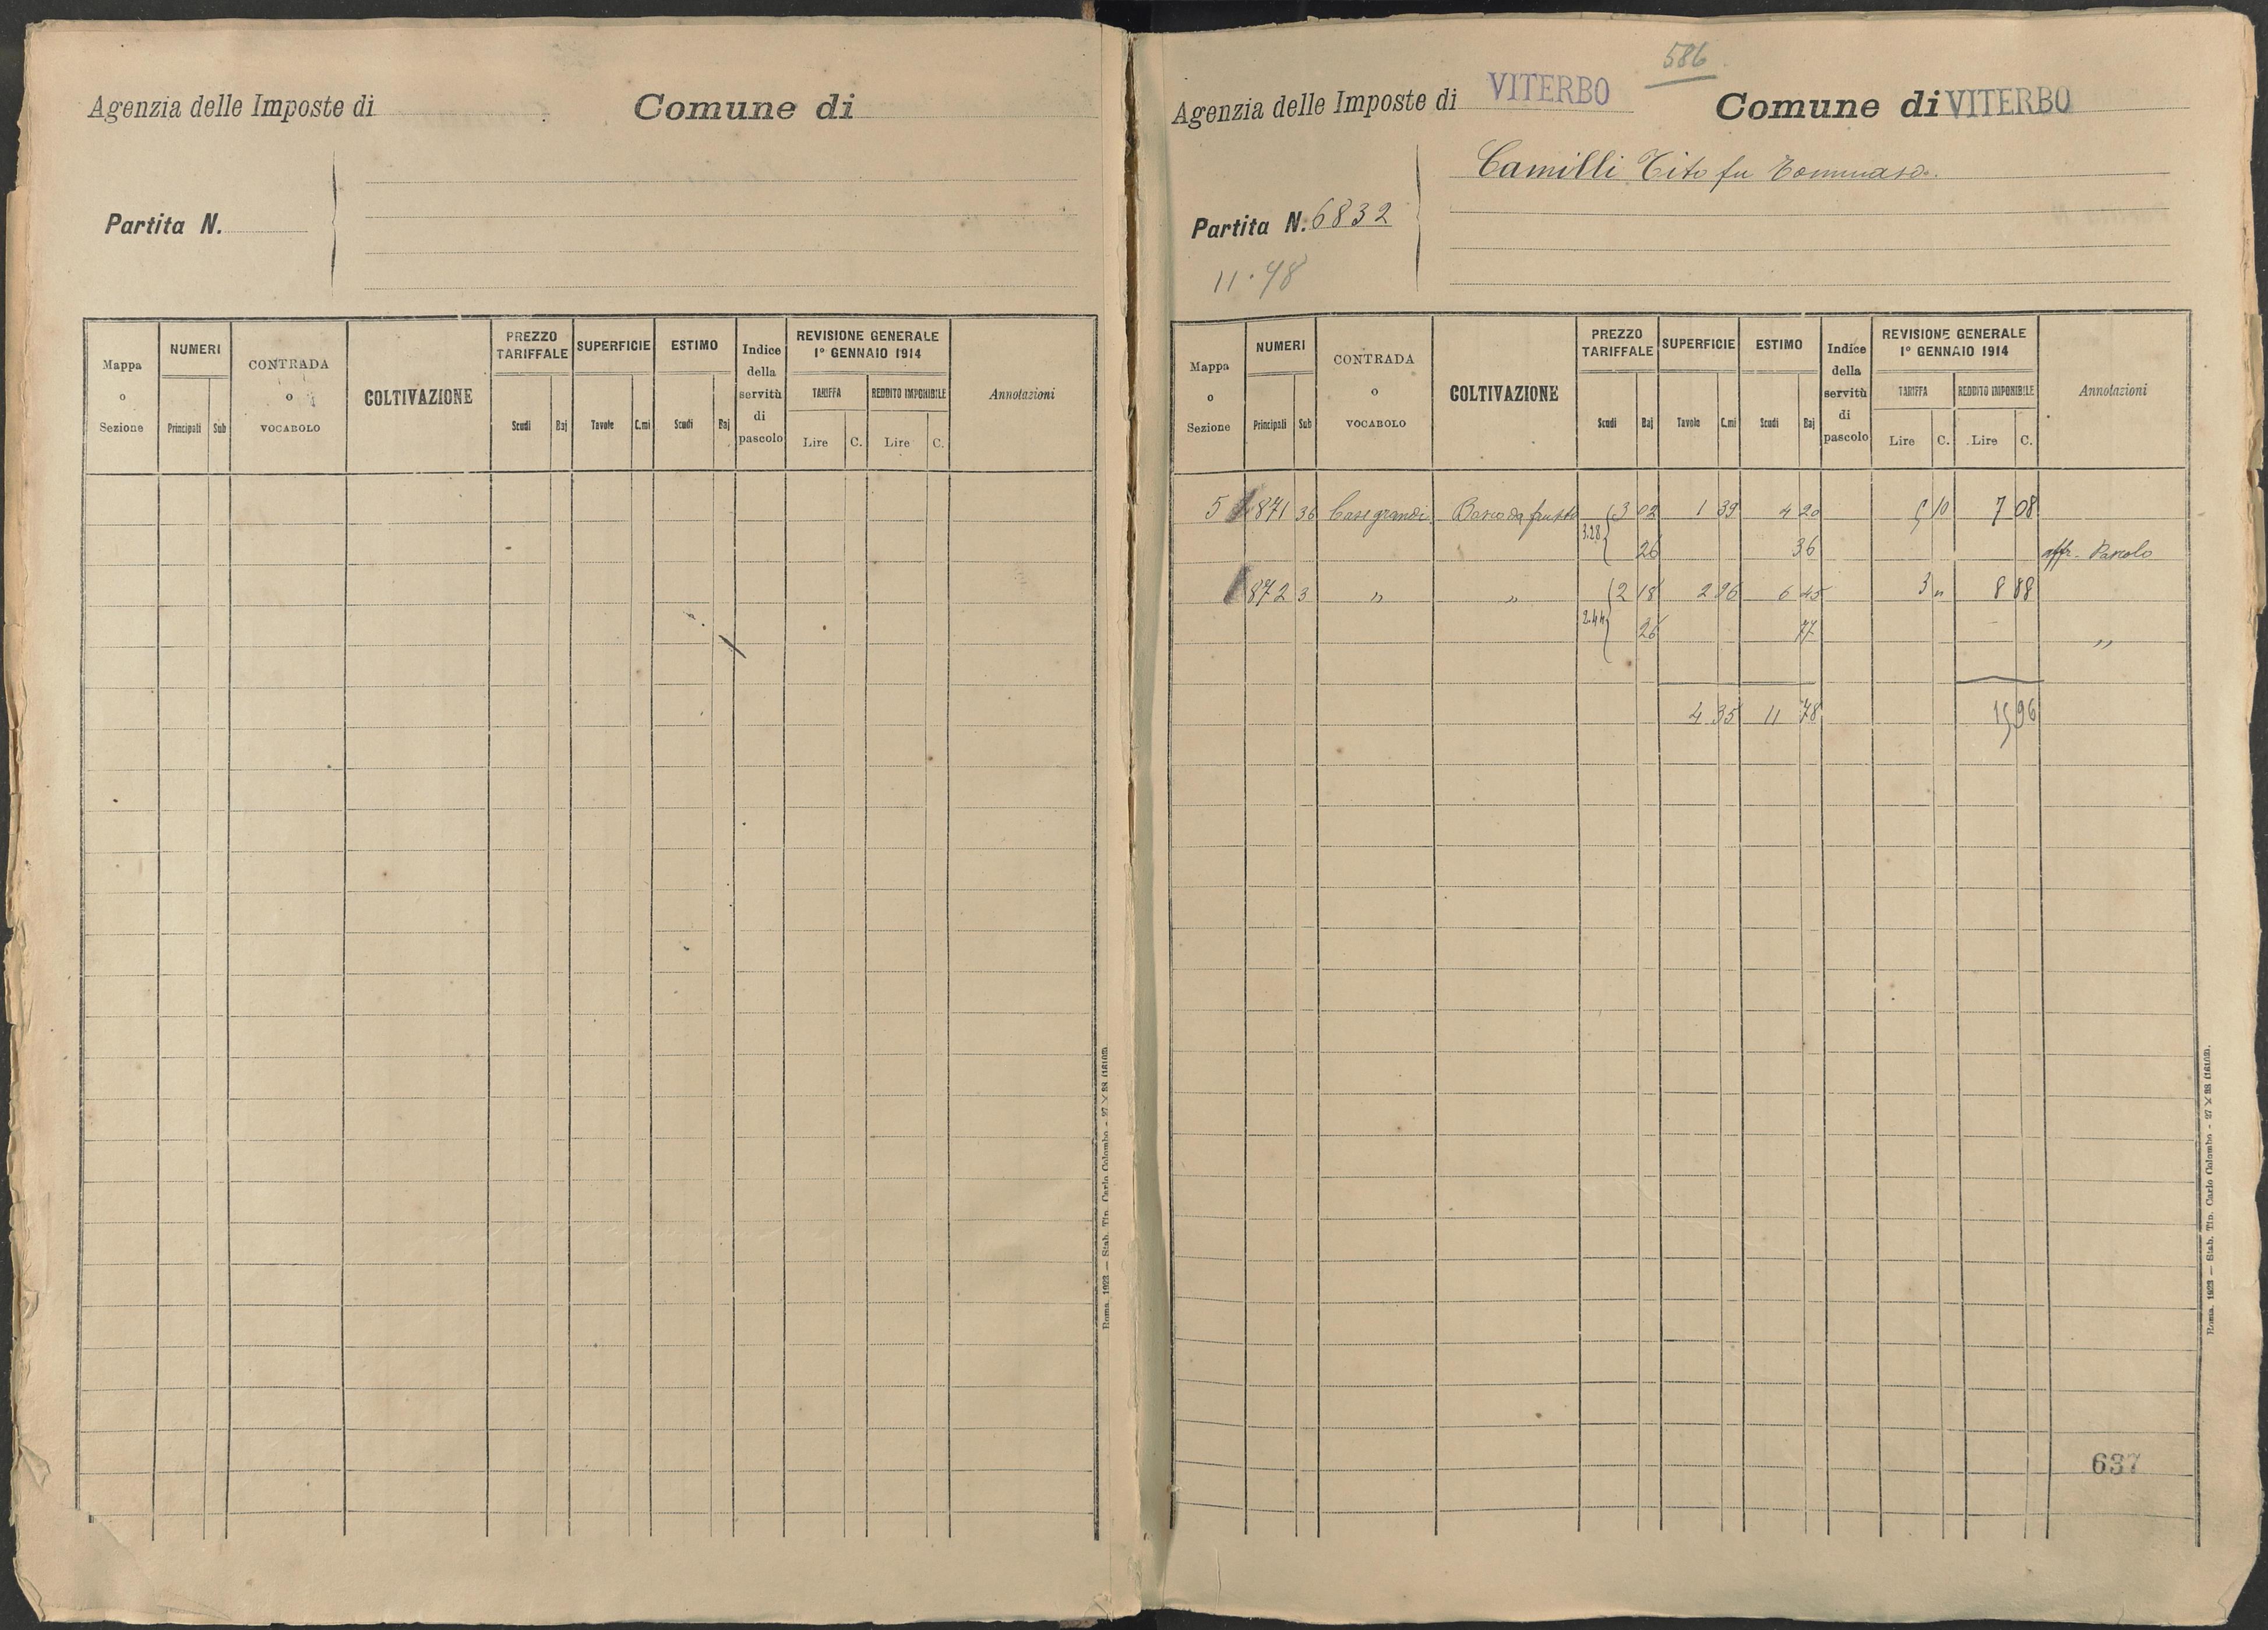 Agenzia delle Imposte di
Comune di
Partita N.
Mappa o Sezione
NUMERI
Principali Sub
CONTRADA o VOCABOLO
COLTIVAZIONE
PREZZO TARIFFALE
Scudi Baj
SUPERFICIE
Tavole C.mi
ESTIMO
Scudi Baj
Indice della servitù di pascolo
REVISIONE GENERALE
1° GENNAIO 1914
TARIFFA REDDITO IMPONIBILE
Lire C. Lire C.
Annotazioni
Roma, 1923 — Stab. Tip. Carlo Colombo - 27 X 28
586
Agenzia delle Imposte di VITERBO
Comune di VITERBO
Camilli Tito fu Tommaso.
Partita N. 6832
11.78
Mappa o Sezione
NUMERI
Principali Sub
CONTRADA o VOCABOLO
COLTIVAZIONE
PREZZO TARIFFALE
Scudi Baj
SUPERFICIE
Tavole C.mi
ESTIMO
Scudi Baj
Indice della servitù di pascolo
REVISIONE GENERALE
1° GENNAIO 1914
TARIFFA REDDITO IMPONIBILE
Lire C. Lire C.
Annotazioni
5 871 36 Case grandi 3 02 1 39 4 20 5 10 7 08
3.28 26 36 affr. Pascolo
872 3 " " 2 18 2 96 6 45 3 " 8 88
2.44 26 77 "
4 35 11 78 15 96
637
Roma, 1923 — Stab. Tip. Carlo Colombo - 27 X 28